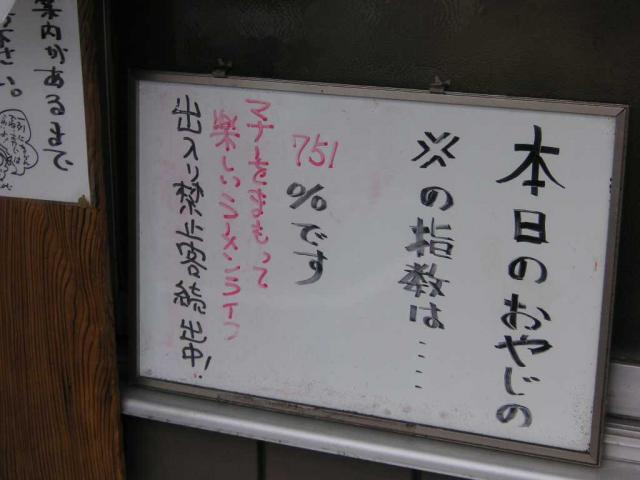 本日のおやじの
※の指数は‥‥
751%です
マナーをまもって
楽しいラーメンライフ
出入り禁止客続出中!
案内があるまで
下さい。